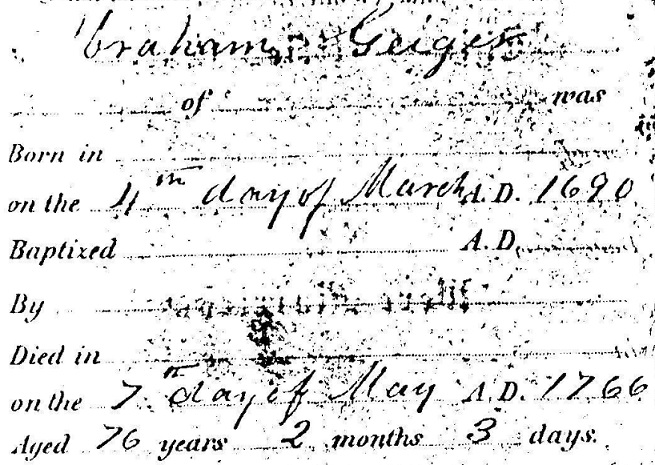 Abraham Geiger
of was
Born in
on the 4th day of March A.D. 1690
Baptized A.D.
By
Died in
on the 7th day of May A.D. 1766
Aged 76 years 2 months 3 days.